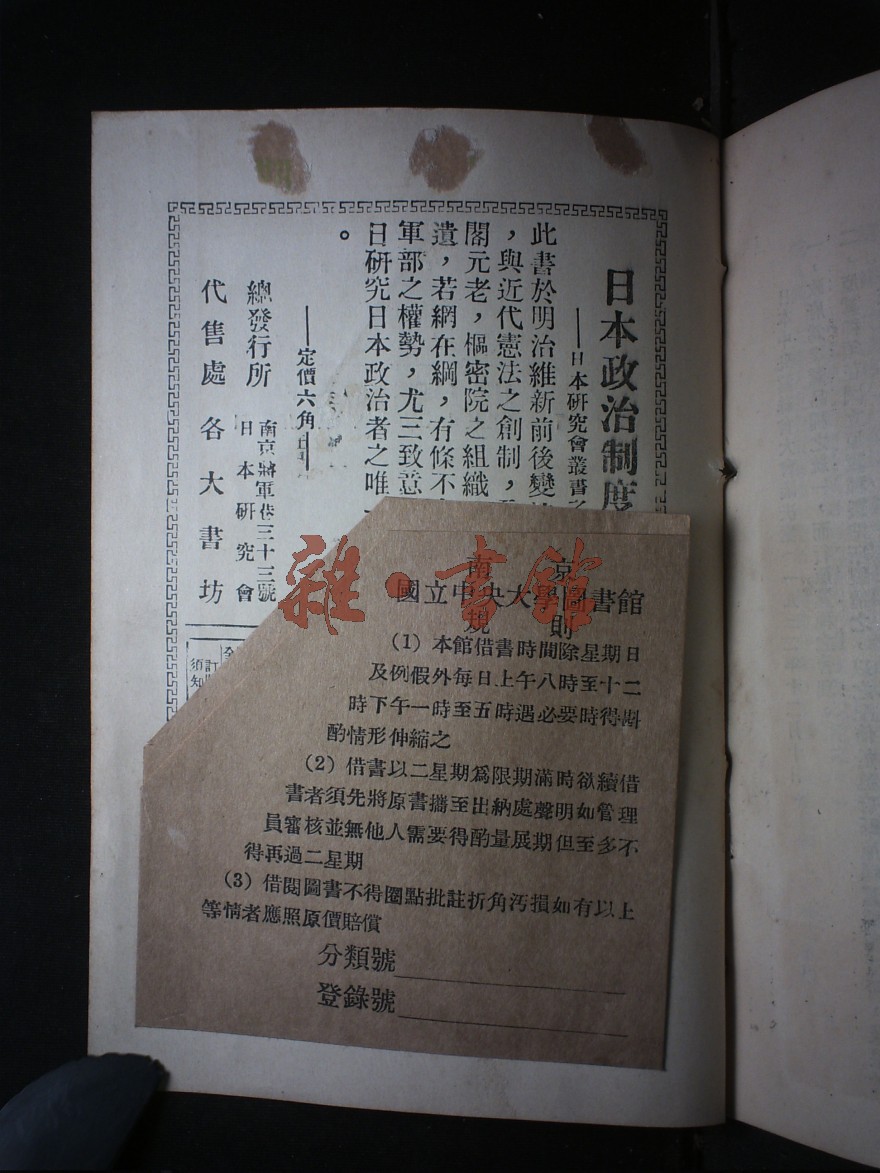 日本政治制度
——日本研究會叢書之
此書於明治維新前後變
，與近代憲法之創制，
閣元老，樞密院之組織
遺，若網在綱，有條不
軍部之權勢，尤三致意
日研究日本政治者之唯一
。
——定價六角
總發行所
南京將軍巷三十三號
日本研究會
代售處 各大書坊
全
訂
須知
南京
國立中央大學圖書館
規則
(1) 本館借書時間除星期日
及例假外每日上午八時至十二
時下午一時至五時遇必要時得斟
酌情形伸縮之
(2) 借書以二星期爲限期滿時欲續借
書者須先將原書攜至出納處聲明如管理
員審核並無他人需要得酌量展期但至多不
得再過二星期
(3) 借閱圖書不得圈點批註折角汚損如有以上
等情者應照原價賠償
分類號
登錄號
雜·書館